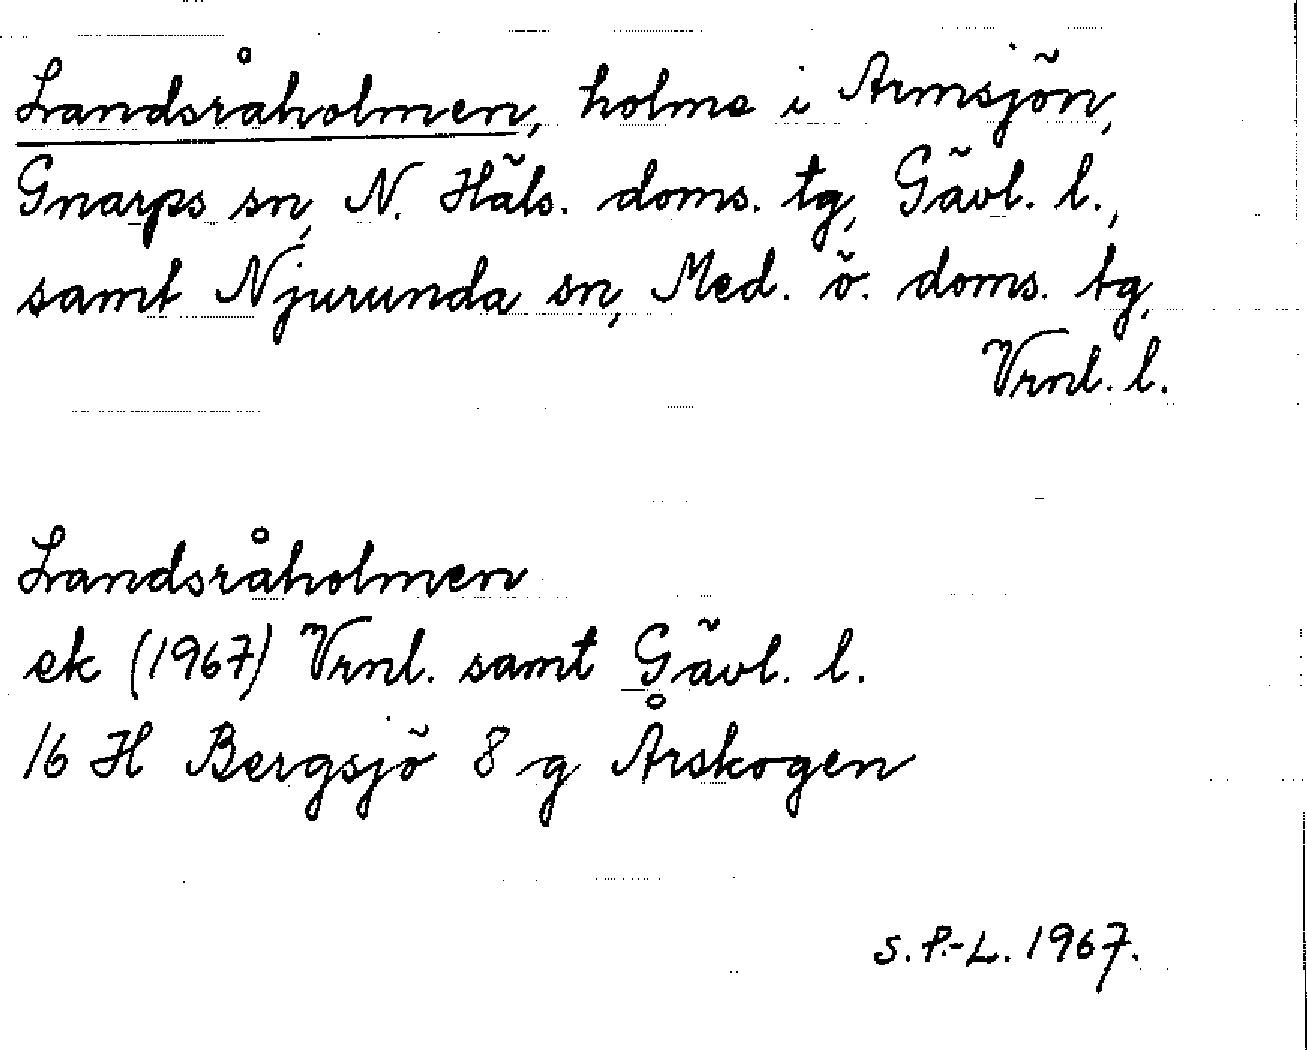 Landsråholmen, holme i Armsjön,
Gnarps sn, N. Häls. doms. tg, Gävl. l.,
samt Njurunda sn, Med. ö. doms. tg,
Vrnl. l.
Landsråholmen
ek (1967) Vrnl. samt Gävl. l.
16 H Bergsjö 8 g Årskogen
S. P.-L. 1967.